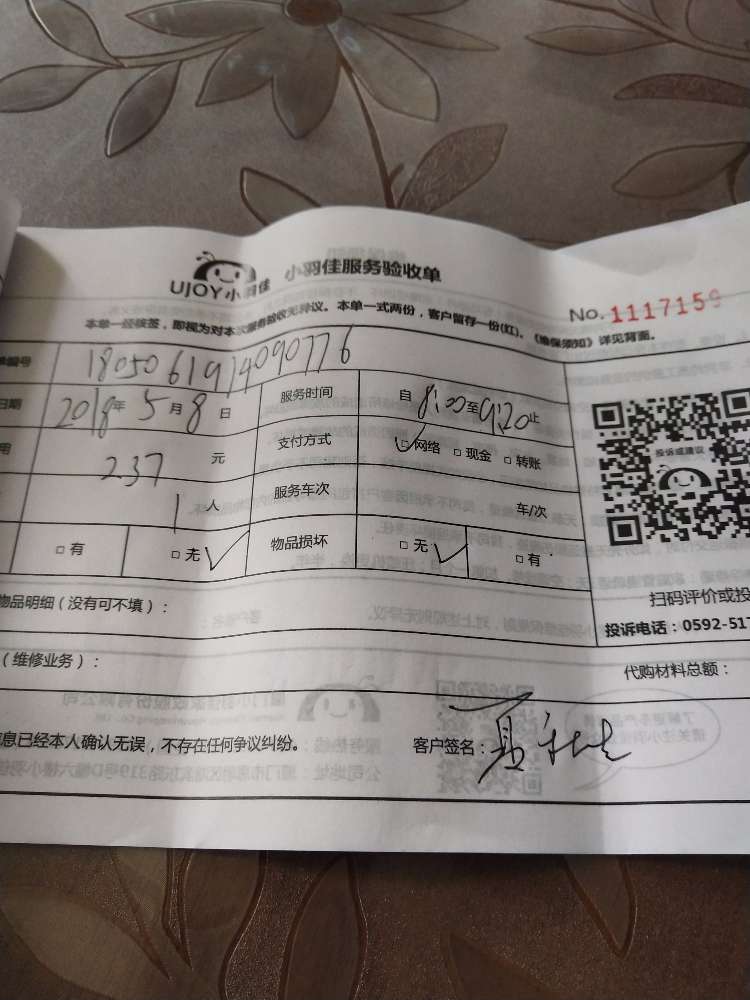 UJOY小羽佳 小羽佳服务验收单
No. 1117159
本单一经核签，即视为对本次服务验收无异议。本单一式两份，客户留存一份(红)。《维保须知》详见背面。
单编号 1805061914090776
日期 2018年5月8日 服务时间 自8:00至9:20止
用 237 元 支付方式 ☑网络 □现金 □转账
1人 服务车次 车/次
□有 □无✓ 物品损坏 □无✓ □有
投诉或建议
物品明细（没有可不填）：
扫码评价或投
投诉电话：0592-517
（维修业务）：
代购材料总额：
息已经本人确认无误，不存在任何争议纠纷。 客户签名：